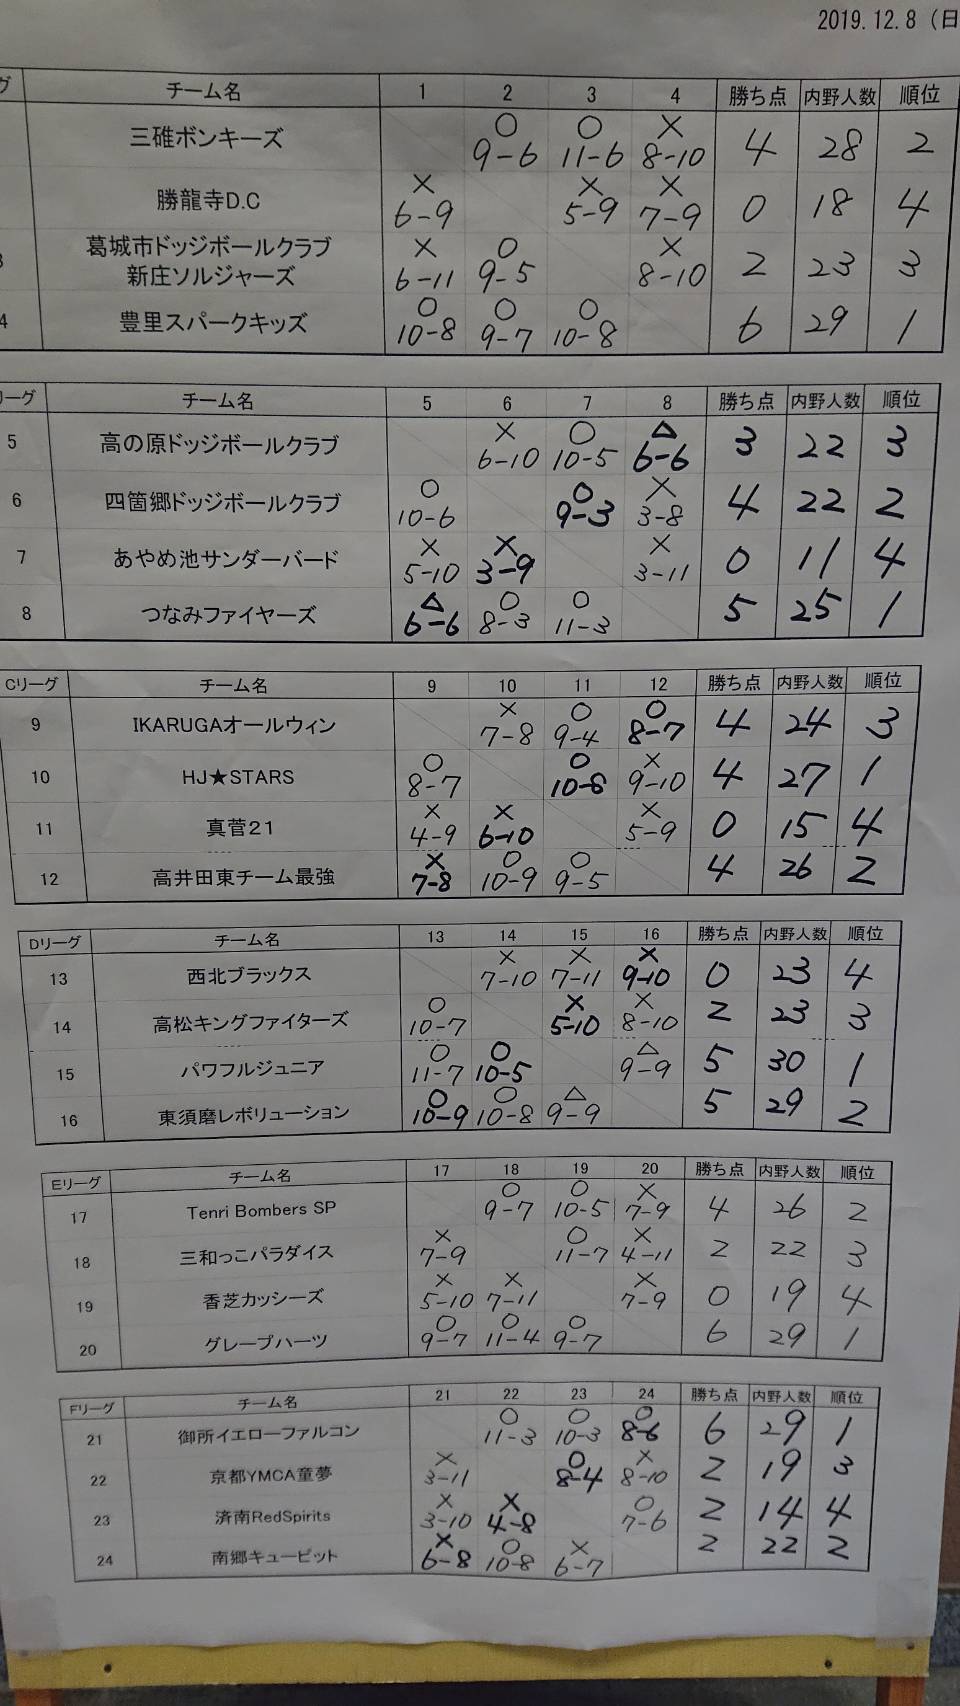 2019.12.8（日
グ チーム名 1 2 3 4 勝ち点 内野人数 順位
三碓ボンキーズ ○ 9-6 ○ 11-6 × 8-10 4 28 2
勝龍寺D.C × 6-9 × 5-9 × 7-9 0 18 4
3 葛城市ドッジボールクラブ
新庄ソルジャーズ × 6-11 ○ 9-5 × 8-10 2 23 3
4 豊里スパークキッズ ○ 10-8 ○ 9-7 ○ 10-8 6 29 1
リーグ チーム名 5 6 7 8 勝ち点 内野人数 順位
5 高の原ドッジボールクラブ × 6-10 ○ 10-5 △ 6-6 3 22 3
6 四箇郷ドッジボールクラブ ○ 10-6 ○ 9-3 × 3-8 4 22 2
7 あやめ池サンダーバード × 5-10 × 3-9 × 3-11 0 11 4
8 つなみファイヤーズ △ 6-6 ○ 8-3 ○ 11-3 5 25 1
Cリーグ チーム名 9 10 11 12 勝ち点 内野人数 順位
9 IKARUGAオールウィン × 7-8 ○ 9-4 ○ 8-7 4 24 3
10 HJ★STARS ○ 8-7 ○ 10-6 × 9-10 4 27 1
11 真菅21 × 4-9 × 6-10 × 5-9 0 15 4
12 高井田東チーム最強 × 7-8 ○ 10-9 ○ 9-5 4 26 2
Dリーグ チーム名 13 14 15 16 勝ち点 内野人数 順位
13 西北ブラックス × 7-10 × 7-11 × 9-10 0 23 4
14 高松キングファイターズ ○ 10-7 × 5-10 × 8-10 2 23 3
15 パワフルジュニア ○ 11-7 ○ 10-5 △ 9-9 5 30 1
16 東須磨レボリューション ○ 10-9 ○ 10-8 △ 9-9 5 29 2
Eリーグ チーム名 17 18 19 20 勝ち点 内野人数 順位
17 Tenri Bombers SP ○ 9-7 ○ 10-5 × 7-9 4 26 2
18 三和っこパラダイス × 7-9 ○ 11-7 × 4-11 2 22 3
19 香芝カッシーズ × 5-10 × 7-11 × 7-9 0 19 4
20 グレープハーツ ○ 9-7 ○ 11-4 ○ 9-7 6 29 1
Fリーグ チーム名 21 22 23 24 勝ち点 内野人数 順位
21 御所イエローファルコン ○ 11-3 ○ 10-3 ○ 8-6 6 29 1
22 京都YMCA童夢 × 3-11 ○ 8-4 × 8-10 2 19 3
23 済南RedSpirits × 3-10 × 4-8 ○ 7-6 2 14 4
24 南郷キューピット × 6-8 ○ 10-8 × 6-7 2 22 2